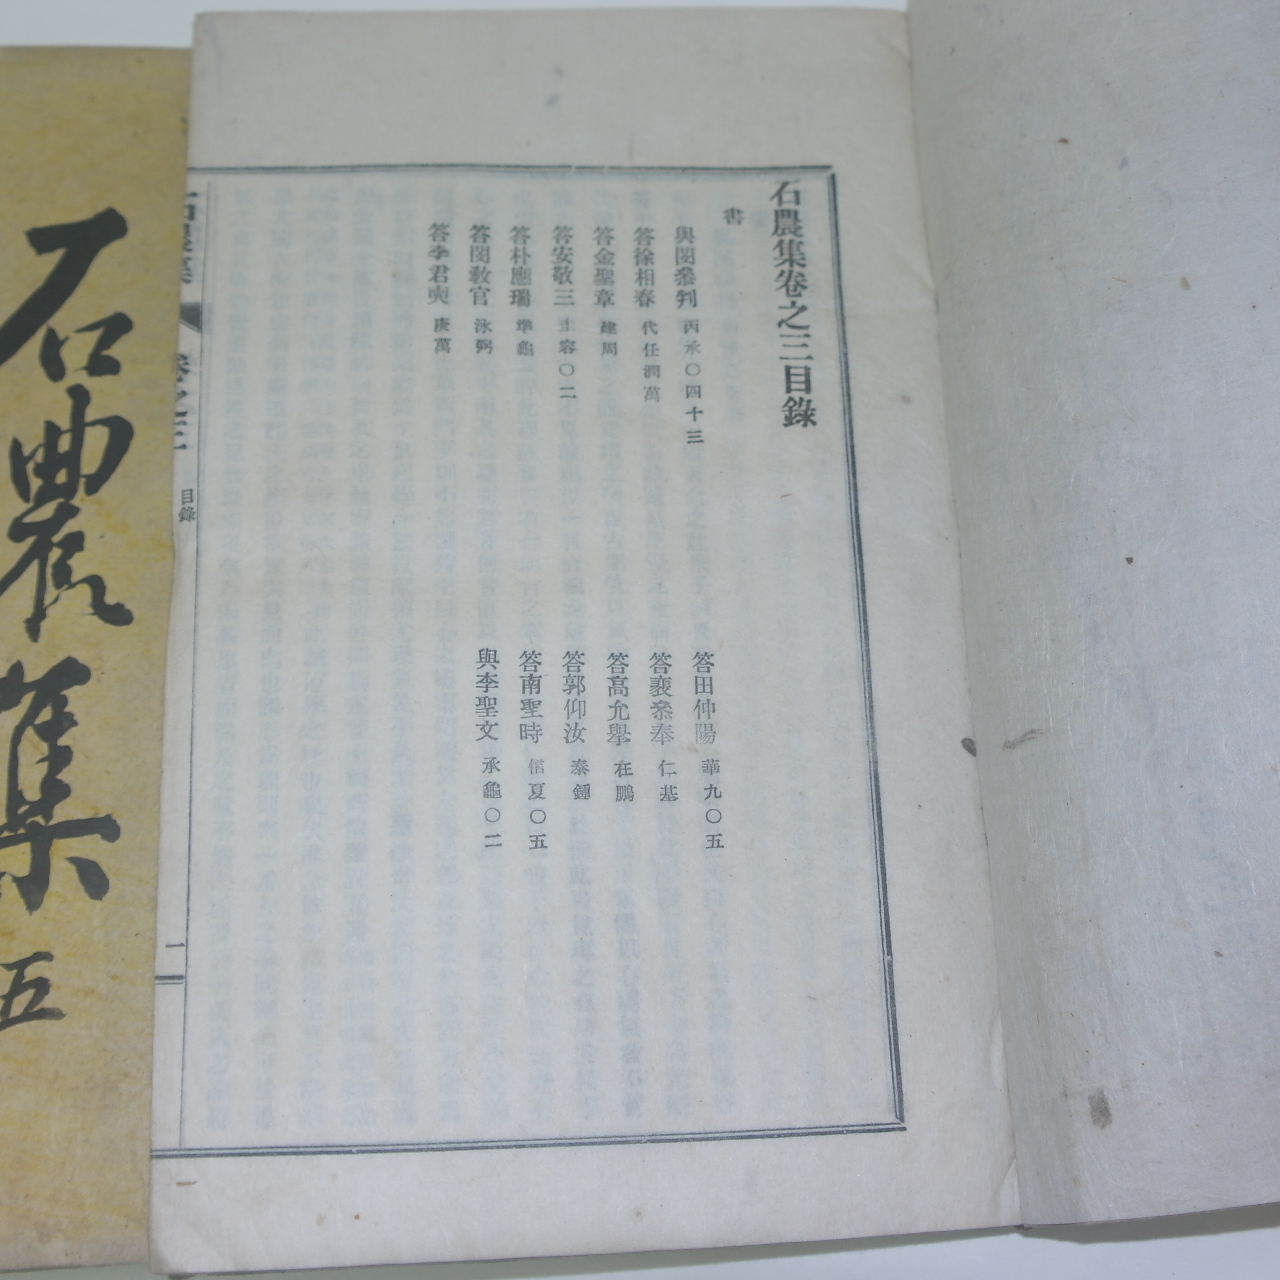 石農集卷之三目錄
書
與閔叅判 丙承○四十三
答田仲陽 華九○五
答徐相春 代任潤萬
答裵叅奉 仁基
答金聖章 建周
答高允擧 在鵬
答安敬三 圭容○二
答郭仰汝 泰鍾
答朴應瑞 準龜
答南聖時 信夏○五
答閔敎官 泳弼
與李聖文 承龜○二
答李君奭 庚萬
石農集 卷之三 目錄 一
石農集 五